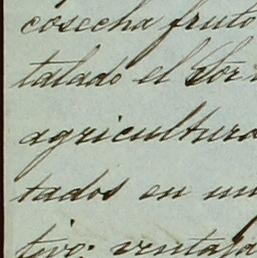 cosecha fruto
talado el Sor
agricultura
tados en un
tivo; ventaja